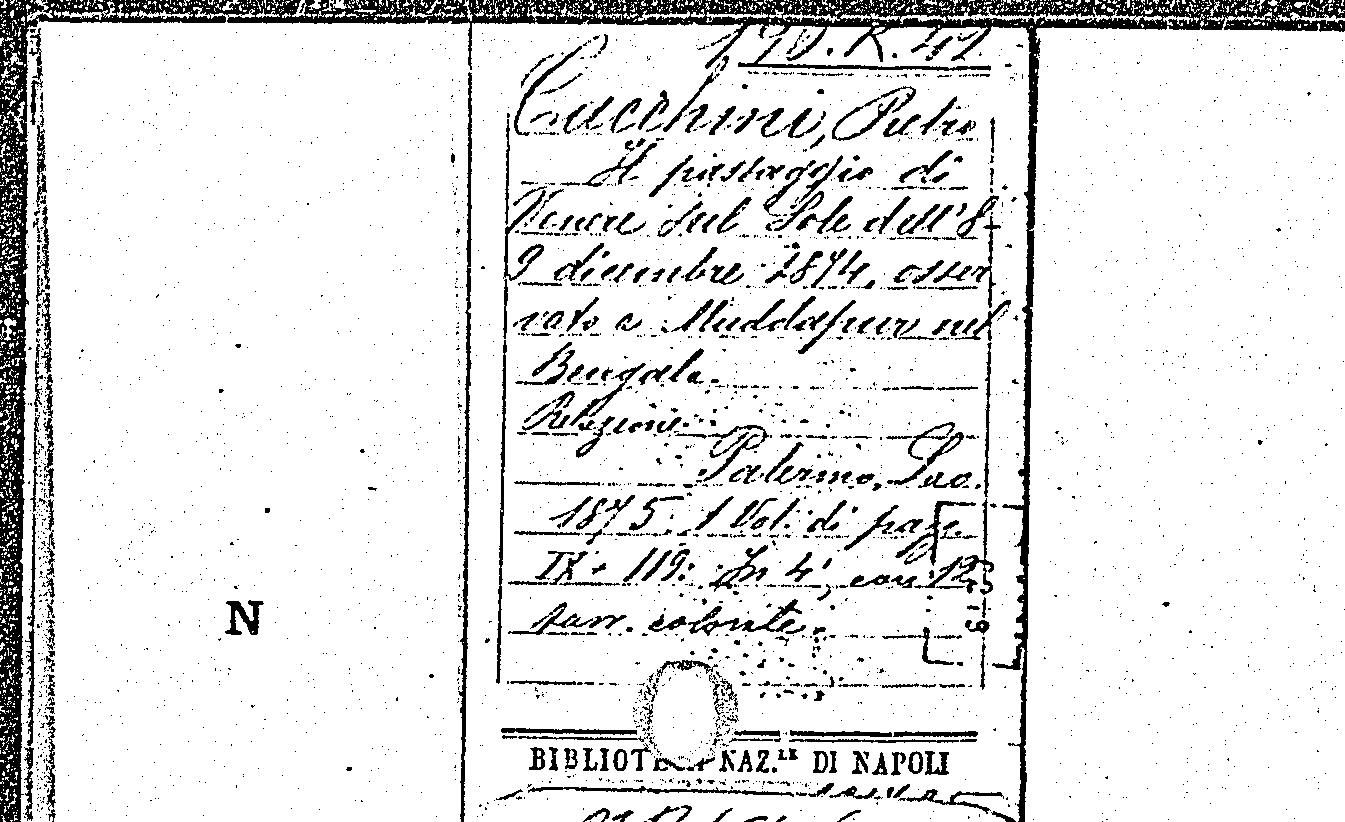 190.K.42
Cacchini, Pietro
Il passaggio di
Venere sul Sole dell'8-
9 dicembre 1874, osser
vato a Muddapur nel
Bengala.
Relazione.
Palermo, Lao.
1875. 1 Vol. di pagg.
IX - 119: In 4°, con 12
tavv. colorate.
N
BIBLIOTECA NAZ.LE DI NAPOLI